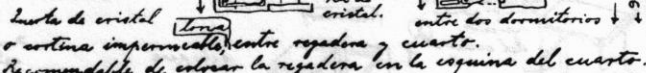 Puerta de cristal
cristal.
entre dos dormitorios
lona
o cortina impermeable, entre regadera y cuarto.
Recomendable de colocar la regadera en la esquina del cuarto.